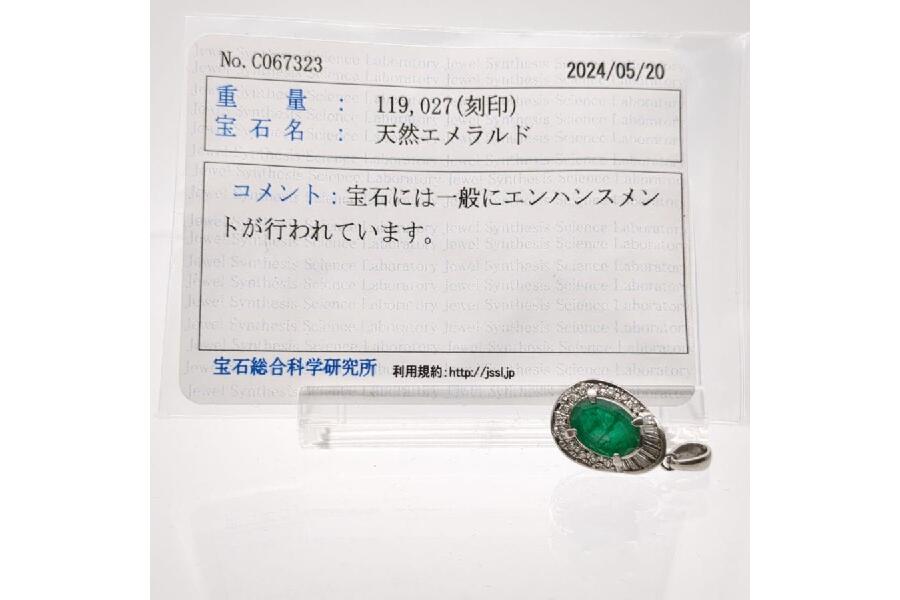 No. C067323
2024/05/20
重量 : 119,027(刻印)
宝石名 : 天然エメラルド
コメント：宝石には一般にエンハンスメン
トが行われています。
宝石総合科学研究所 利用規約:http://jssl.jp
Jewel Synthesis Science Laboratory Jewel Synthesis Science Laboratory